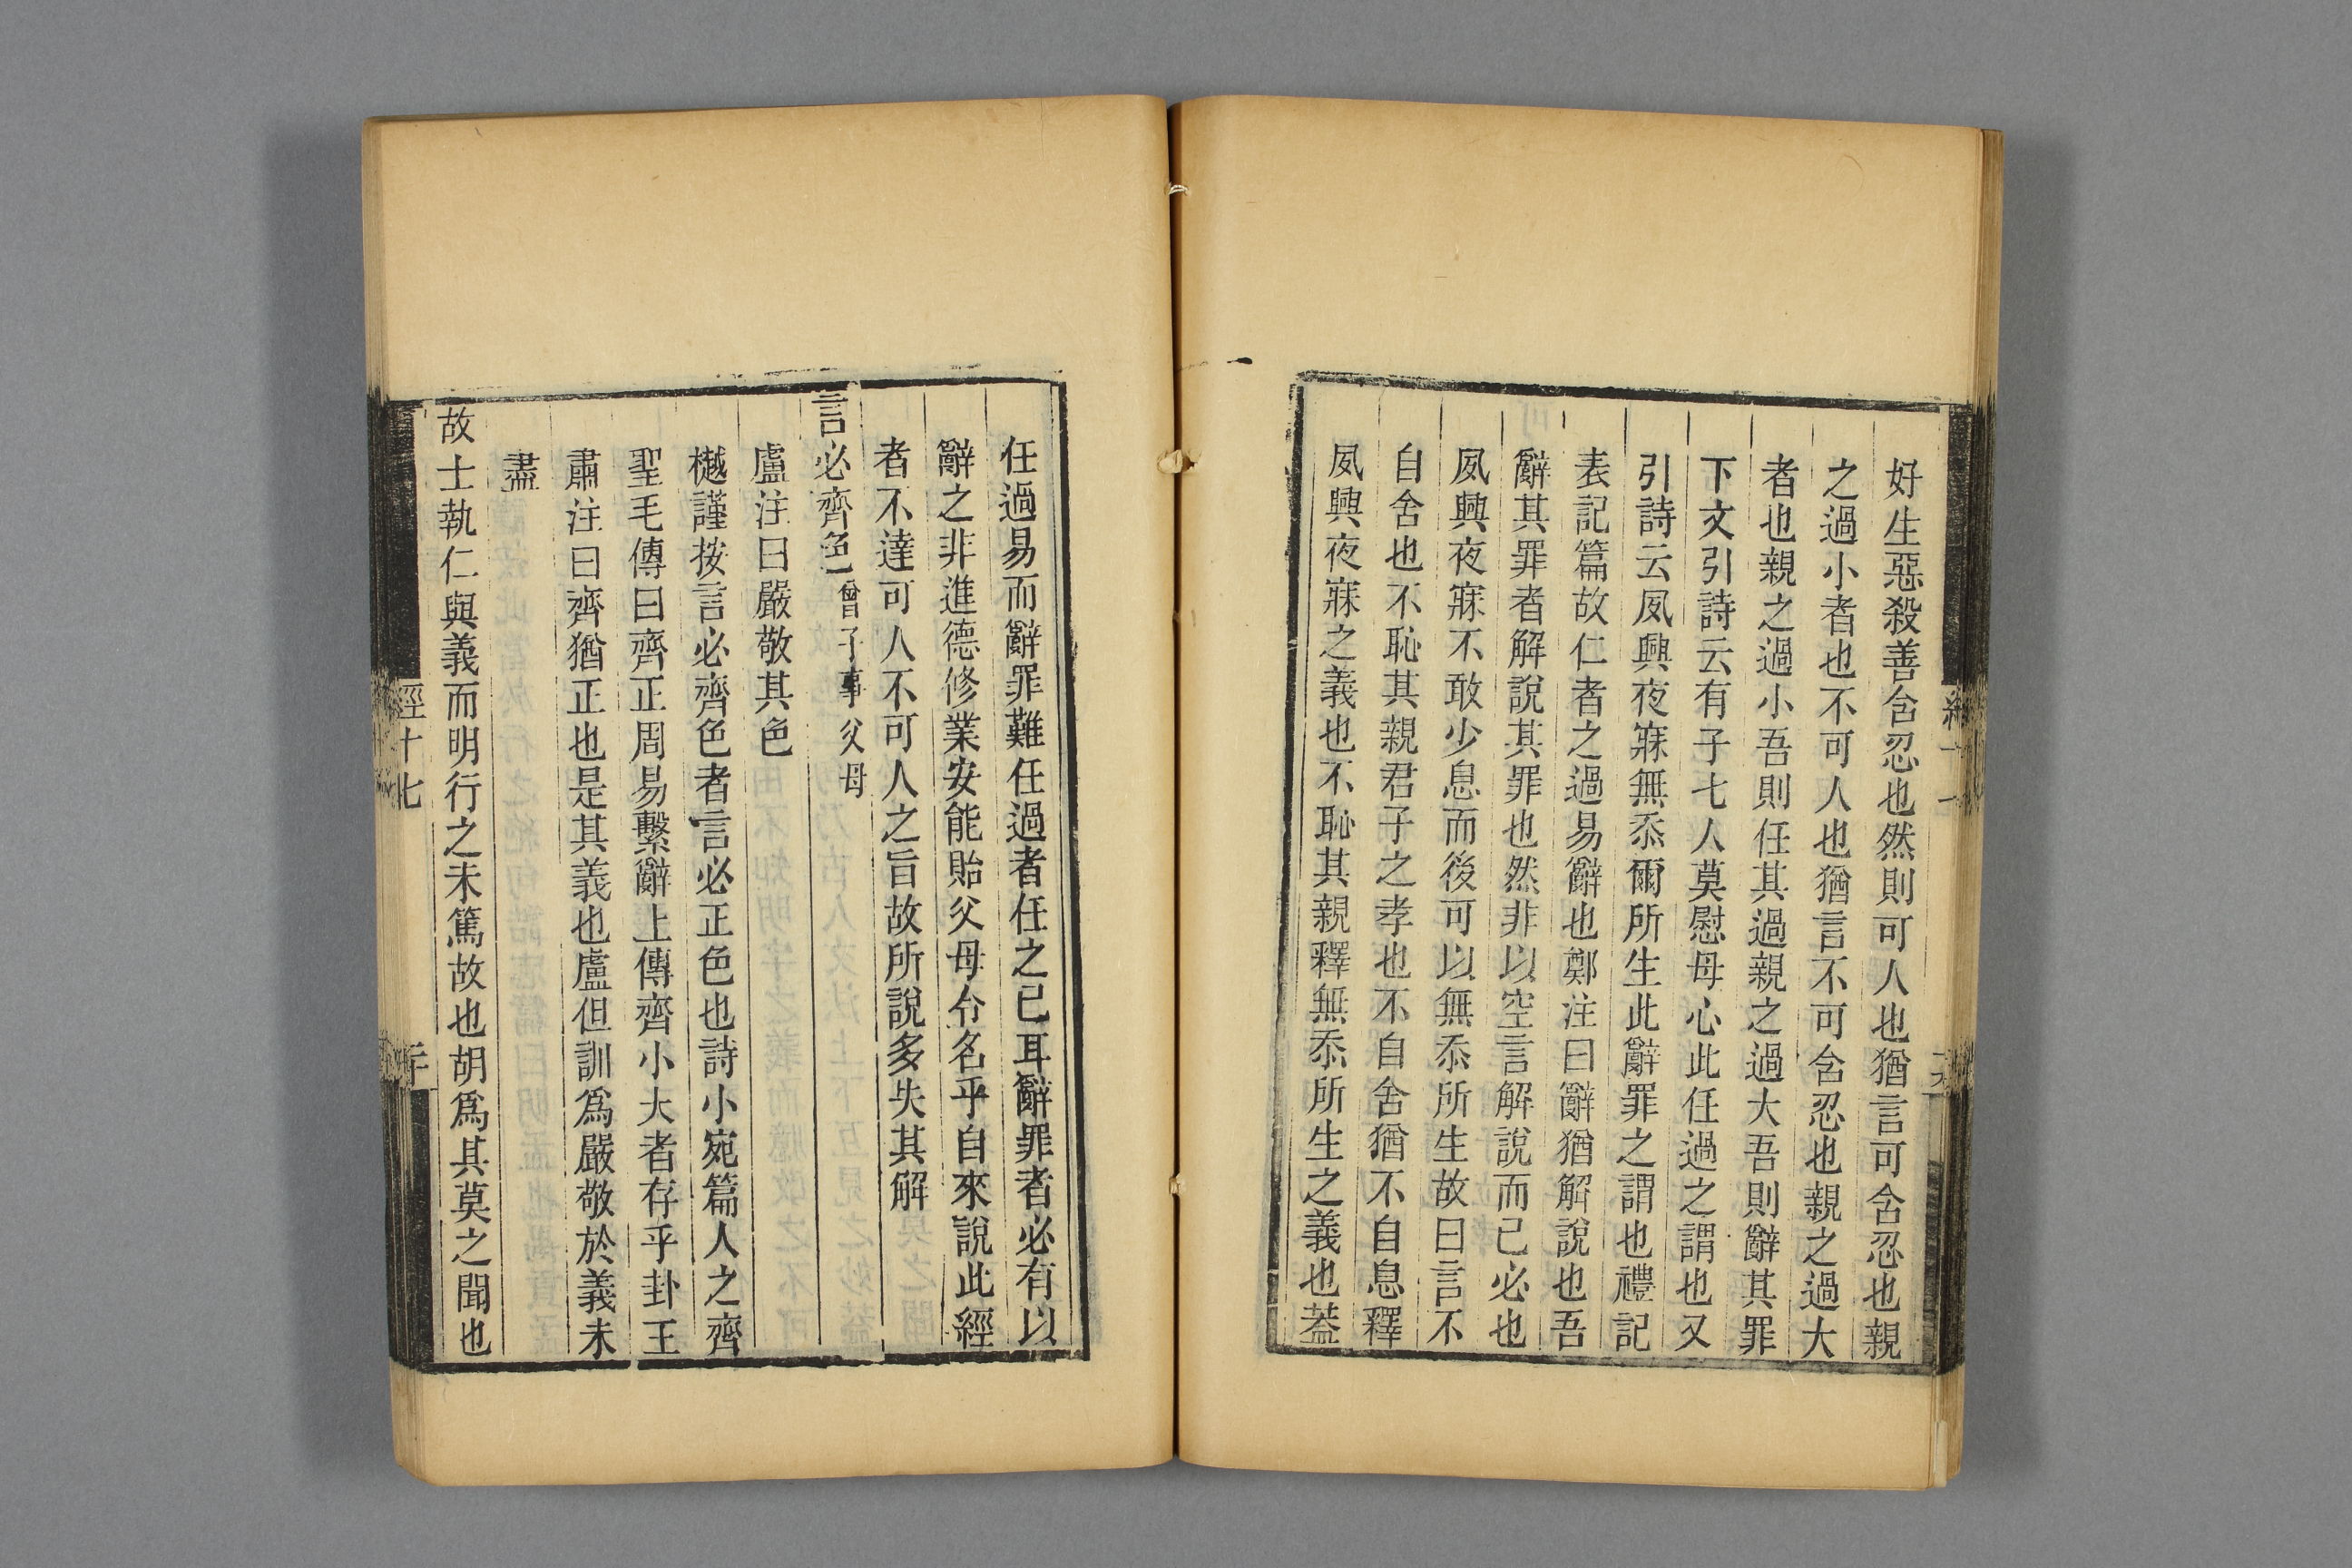 好生惡殺善含忍也然則可人也猶言可含忍也親
之過小者也不可人也猶言不可含忍也親之過大
者也親之過小吾則任其過親之過大吾則辭其罪
下文引詩云有子七人莫慰母心此任過之謂也又
引詩云夙興夜寐無忝爾所生此辭罪之謂也禮記
表記篇故仁者之過易辭也鄭注曰辭猶解說也吾
辭其罪者解說其罪也然非以空言解說而已必也
夙興夜寐不敢少息而後可以無忝所生故曰言不
自舍也不恥其親君子之孝也不自舍猶不自息釋
夙興夜寐之義也不恥其親釋無忝所生之義也蓋
任過易而辭罪難任過者任之已耳辭罪者必有以
辭之非進德修業安能貽父母令名乎自來說此經
者不達可人不可人之旨故所說多失其解
言必齊色曾子事父母
盧注曰嚴敬其色
樾謹按言必齊色者言必正色也詩小宛篇人之齊
聖毛傳曰齊正周易繫辭上傳齊小大者存乎卦王
肅注曰齊猶正也是其義也盧但訓爲嚴敬於義未
盡
故士執仁與義而明行之未篤故也胡爲其莫之聞也
經十七